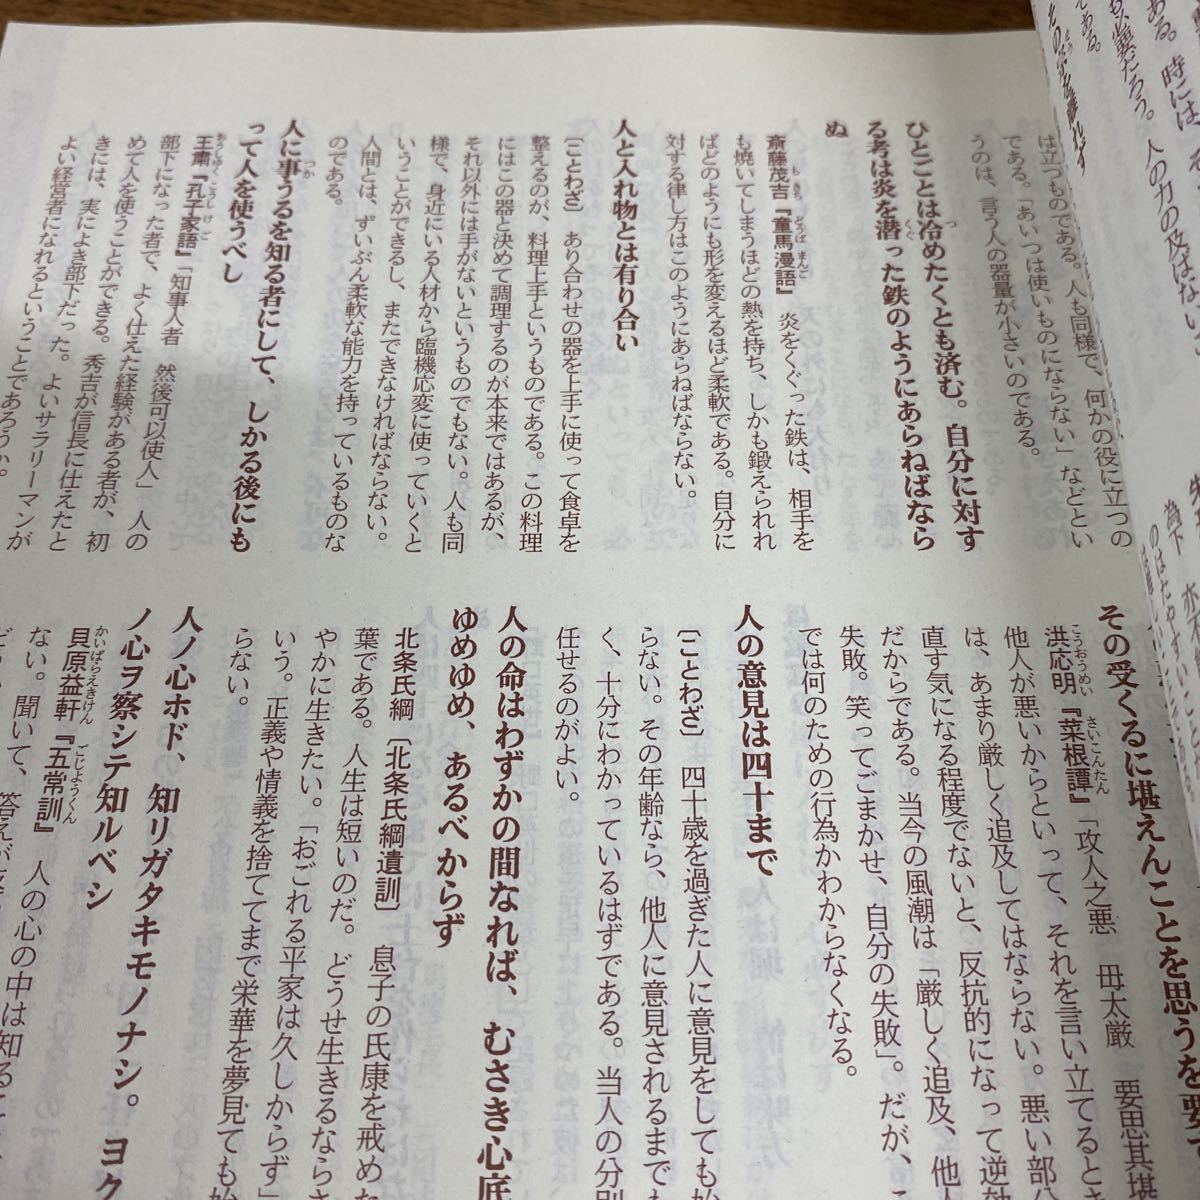 は立つものである。人も同様で、何かの役に立つの
である。「あいつは使いものにならない」などとい
うのは、言う人の器量が小さいのである。
ひとごとは冷めたくとも済む。自分に対す
る考は炎を潜った鉄のようにあらねばなら
ぬ
斎藤茂吉『童馬漫語』　炎をくぐった鉄は、相手を
も焼いてしまうほどの熱を持ち、しかも鍛えられれ
ばどのようにも形を変えるほど柔軟である。自分に
対する律し方はこのようにあらねばならない。
人と入れ物とは有り合い
〔ことわざ〕　あり合わせの器を上手に使って食卓を
整えるのが、料理上手というものである。この料理
にはこの器と決めて調理するのが本来ではあるが、
それ以外には手がないというものでもない。人も同
様で、身近にいる人材から臨機応変に使っていくと
いうことができるし、またできなければならない。
人間とは、ずいぶん柔軟な能力を持っているものな
のである。
人に事うるを知る者にして、しかる後にも
って人を使うべし
王粛『孔子家語』「知事人者　然後可以使人」人の
部下になった者で、よく仕えた経験がある者が、初
めて人を使うことができる。秀吉が信長に仕えたと
きには、実によき部下だった。よいサラリーマンが
よい経営者になれるということであろうか。
その受くるに堪えんことを思うを要
洪応明『菜根譚』「攻人之悪　毋太厳　要思其堪
他人が悪いからといって、それを言い立てるとき
は、あまり厳しく追及してはならない。悪い部
直す気になる程度でないと、反抗的になって逆効
だからである。当今の風潮は「厳しく追及、他
失敗。笑ってごまかせ、自分の失敗」。だが、こ
では何のための行為かわからなくなる。
人の意見は四十まで
〔ことわざ〕　四十歳を過ぎた人に意見をしても始
らない。その年齢なら、他人に意見されるまでも
く、十分にわかっているはずである。当人の分別
任せるのがよい。
人の命はわずかの間なれば、むさき心底
ゆめゆめ、あるべからず
北条氏綱〔北条氏綱遺訓〕　息子の氏康を戒めた
葉である。人生は短いのだ。どうせ生きるならさ
やかに生きたい。「おごれる平家は久しからず」
いう。正義や情義を捨ててまで栄華を夢見ても始
らない。
人ノ心ホド、知リガタキモノナシ。ヨク
ノ心ヲ察シテ知ルベシ
貝原益軒『五常訓』　人の心の中は知ること
ない。聞いて、答えが